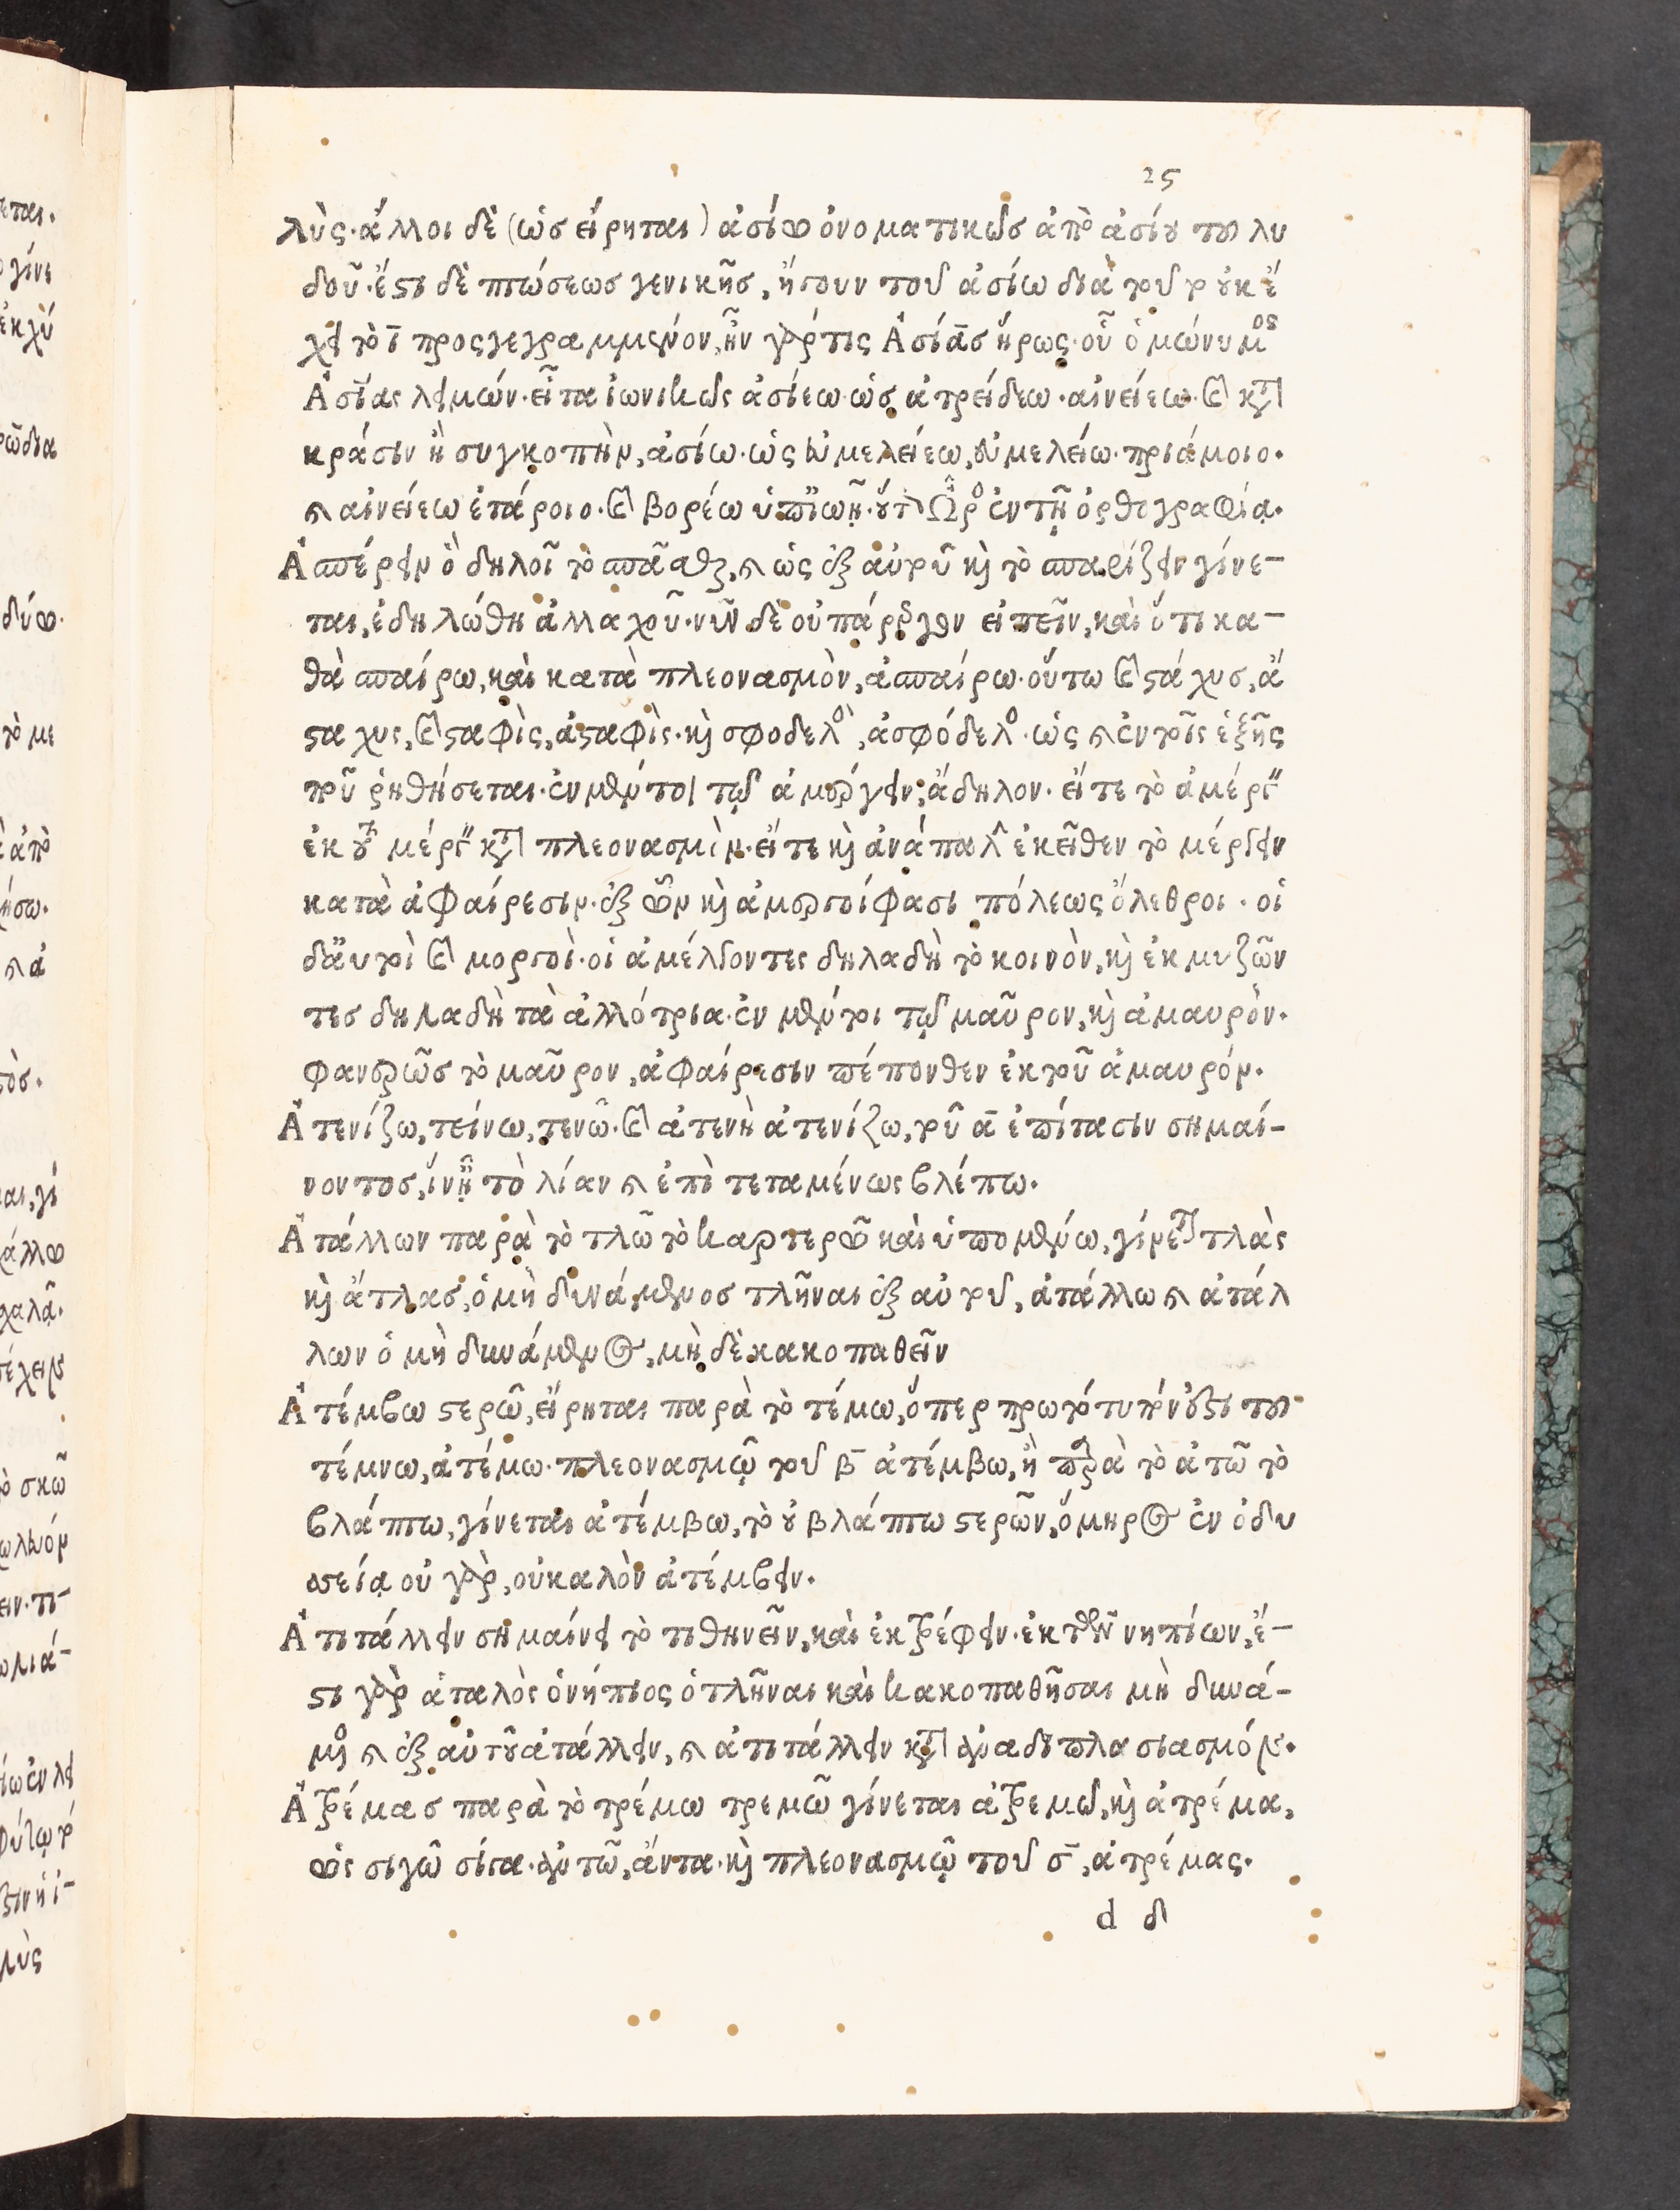 25
λὺς· ἄλλοι δὲ (ὡς εἴρηται) ἀσίω ὀνοματικῶς ἀπὸ ἀσίου τοῦ λυ
δοῦ· ἔστι δὲ πτώσεως γενικῆς, ἤγουν τοῦ ἀσίω διὰ τοῦτο οὐκ ἔ
χει τὸ ϊ προσγεγραμμένον, ἦν γάρ τις Ἀσίας ἥρως· οὗ ὁμώνυμος
Ἀσίας λειμών· εἶτα ἰωνικῶς ἀσίεω· ὡς ἀτρείδεω· αἰνείεω· καὶ κατὰ
κράσιν ἢ συγκοπὴν, ἀσίω· ὡς ἐυμελείεω, ἐυμελείω· πριάμοιο·
καὶ αἰνείεω ἑτάροιο· καὶ βορέω ὑπ' ἰωῇ· οὕτως Ὦρος ἐν τῇ ὀρθογραφίᾳ·
Ἀσπαίρειν ὃ δηλοῖ τὸ σπᾶσθαι, καὶ ὡς ἐξ αὐτοῦ καὶ τὸ σπαρίζειν γίνε-
ται, ἐδηλώθη ἀλλαχοῦ· νῦν δὲ οὐ πάρεργον εἰπεῖν, καὶ ὅτι κα-
θὰ σπαίρω, καὶ κατὰ πλεονασμὸν, ἀσπαίρω· οὕτω καὶ στάχυς, ἄ
σταχυς, καὶ σταφὶς, ἀσταφὶς· καὶ σφοδελὸς, ἀσφόδελος· ὡς καὶ ἐν τοῖς ἑξῆς
που ῥηθήσεται· ἐν μέντοι τῷ ἀμέργειν, ἄδηλον· εἴτε τὸ ἀμέργειν
ἐκ τοῦ μέργειν κατὰ πλεονασμὸν· εἴτε καὶ ἀνάπαλιν ἐκεῖθεν τὸ μέργειν
κατὰ ἀφαίρεσιν· ἐξ ὧν καὶ ἀμοργοί φασι πόλεως ὄλεθροι· οἱ
δ' αὐτοὶ καὶ μοργοὶ· οἱ ἀμέλγοντες δηλαδὴ τὸ κοινὸν, καὶ ἐκμυζῶν
τες δηλαδὴ τὰ ἀλλότρια· ἐν μέντοι τῷ μαῦρον, καὶ ἀμαυρὸν·
φανερῶς τὸ μαῦρον, ἀφαίρεσιν πέπονθεν ἐκ τοῦ ἀμαυρόν·
Ἀτενίζω, τείνω, τενῶ· καὶ ἀτενὴ ἀτενίζω, τοῦ ᾱ ἐπίτασιν σημαί-
νοντος, ἵν' ᾖ τὸ λίαν καὶ ἐπὶ τεταμένως βλέπω·
Ἀτάλλων παρὰ τὸ τλῶ τὸ καρτερῶ καὶ ὑπομένω, γίνεται τλὰς
καὶ ἄτλας, ὁ μὴ δυνάμενος τλῆναι ἐξ αὐτοῦ, ἀτάλλω καὶ ἀτάλ
λων ὁ μὴ δυνάμενος, μὴ δὲ κακοπαθεῖν
Ἀτέμβω στερῶ, εἴρηται παρὰ τὸ τέμω, ὅπερ πρωτότυπόν ἐστι τοῦ
τέμνω, ἀτέμω· πλεονασμῷ τοῦ β̄ ἀτέμβω, ἢ παρὰ τὸ ἀτῶ τὸ
βλάπτω, γίνεται ἀτέμβω, τὸ οὐ βλάπτω στερῶν, ὅμηρος ἐν ὀδυ
σείᾳ οὐ γὰρ, οὐ καλὸν ἀτέμβειν·
Ἀτιτάλλειν σημαίνει τὸ τιθηνεῖν, καὶ ἐκτρέφειν· ἐκ τῶν νηπίων, ἔ-
στι γὰρ ἀταλὸς ὁ νήπιος ὁ τλῆναι καὶ κακοπαθῆσαι μὴ δυνά-
μενος καὶ ἐξ αὐτοῦ ἀτάλλειν, καὶ ἀτιτάλλειν κατὰ ἀναδιπλασιασμόν·
Ἀτρέμας παρὰ τὸ τρέμω τρεμῶ γίνεται ἀτρεμῶ, καὶ ἀτρέμα,
ὡς σιγῶ σίγα· ἀντῶ, ἄντα· καὶ πλεονασμῷ τοῦ σ̄, ἀτρέμας·
d δ